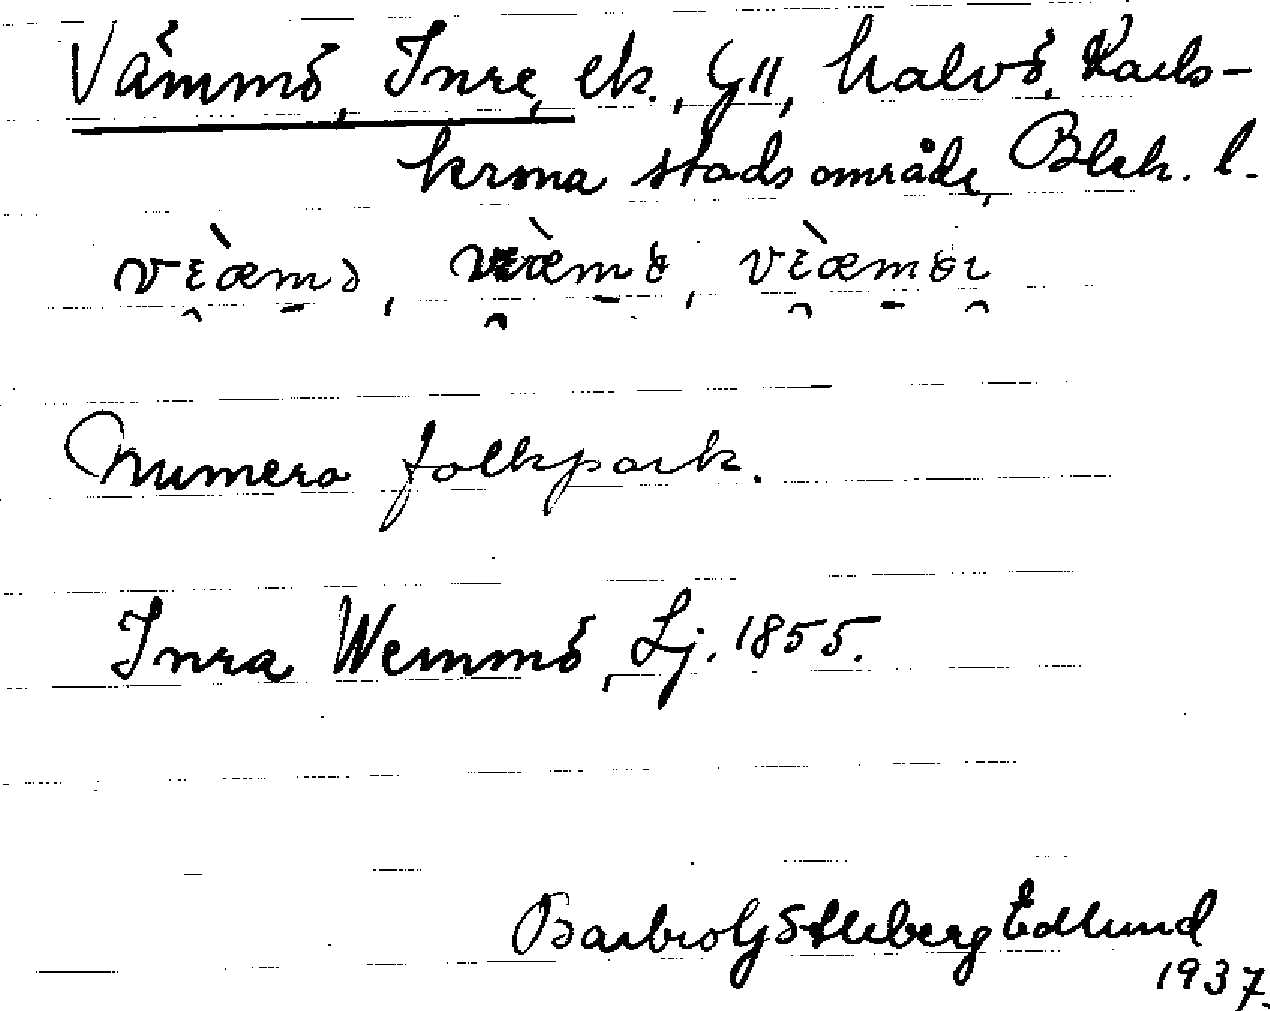 Vämmö, Inre, ek., G11, halvö, Karls-
krona stadsområde, Blek. l.
Numera folkpark.
Inra Wemmö, Lj. 1855.
Barbro Götlleberg Edlund
1937.